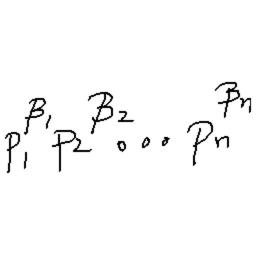 p₁^β₁ p₂^β₂ ... pₙ^βₙ